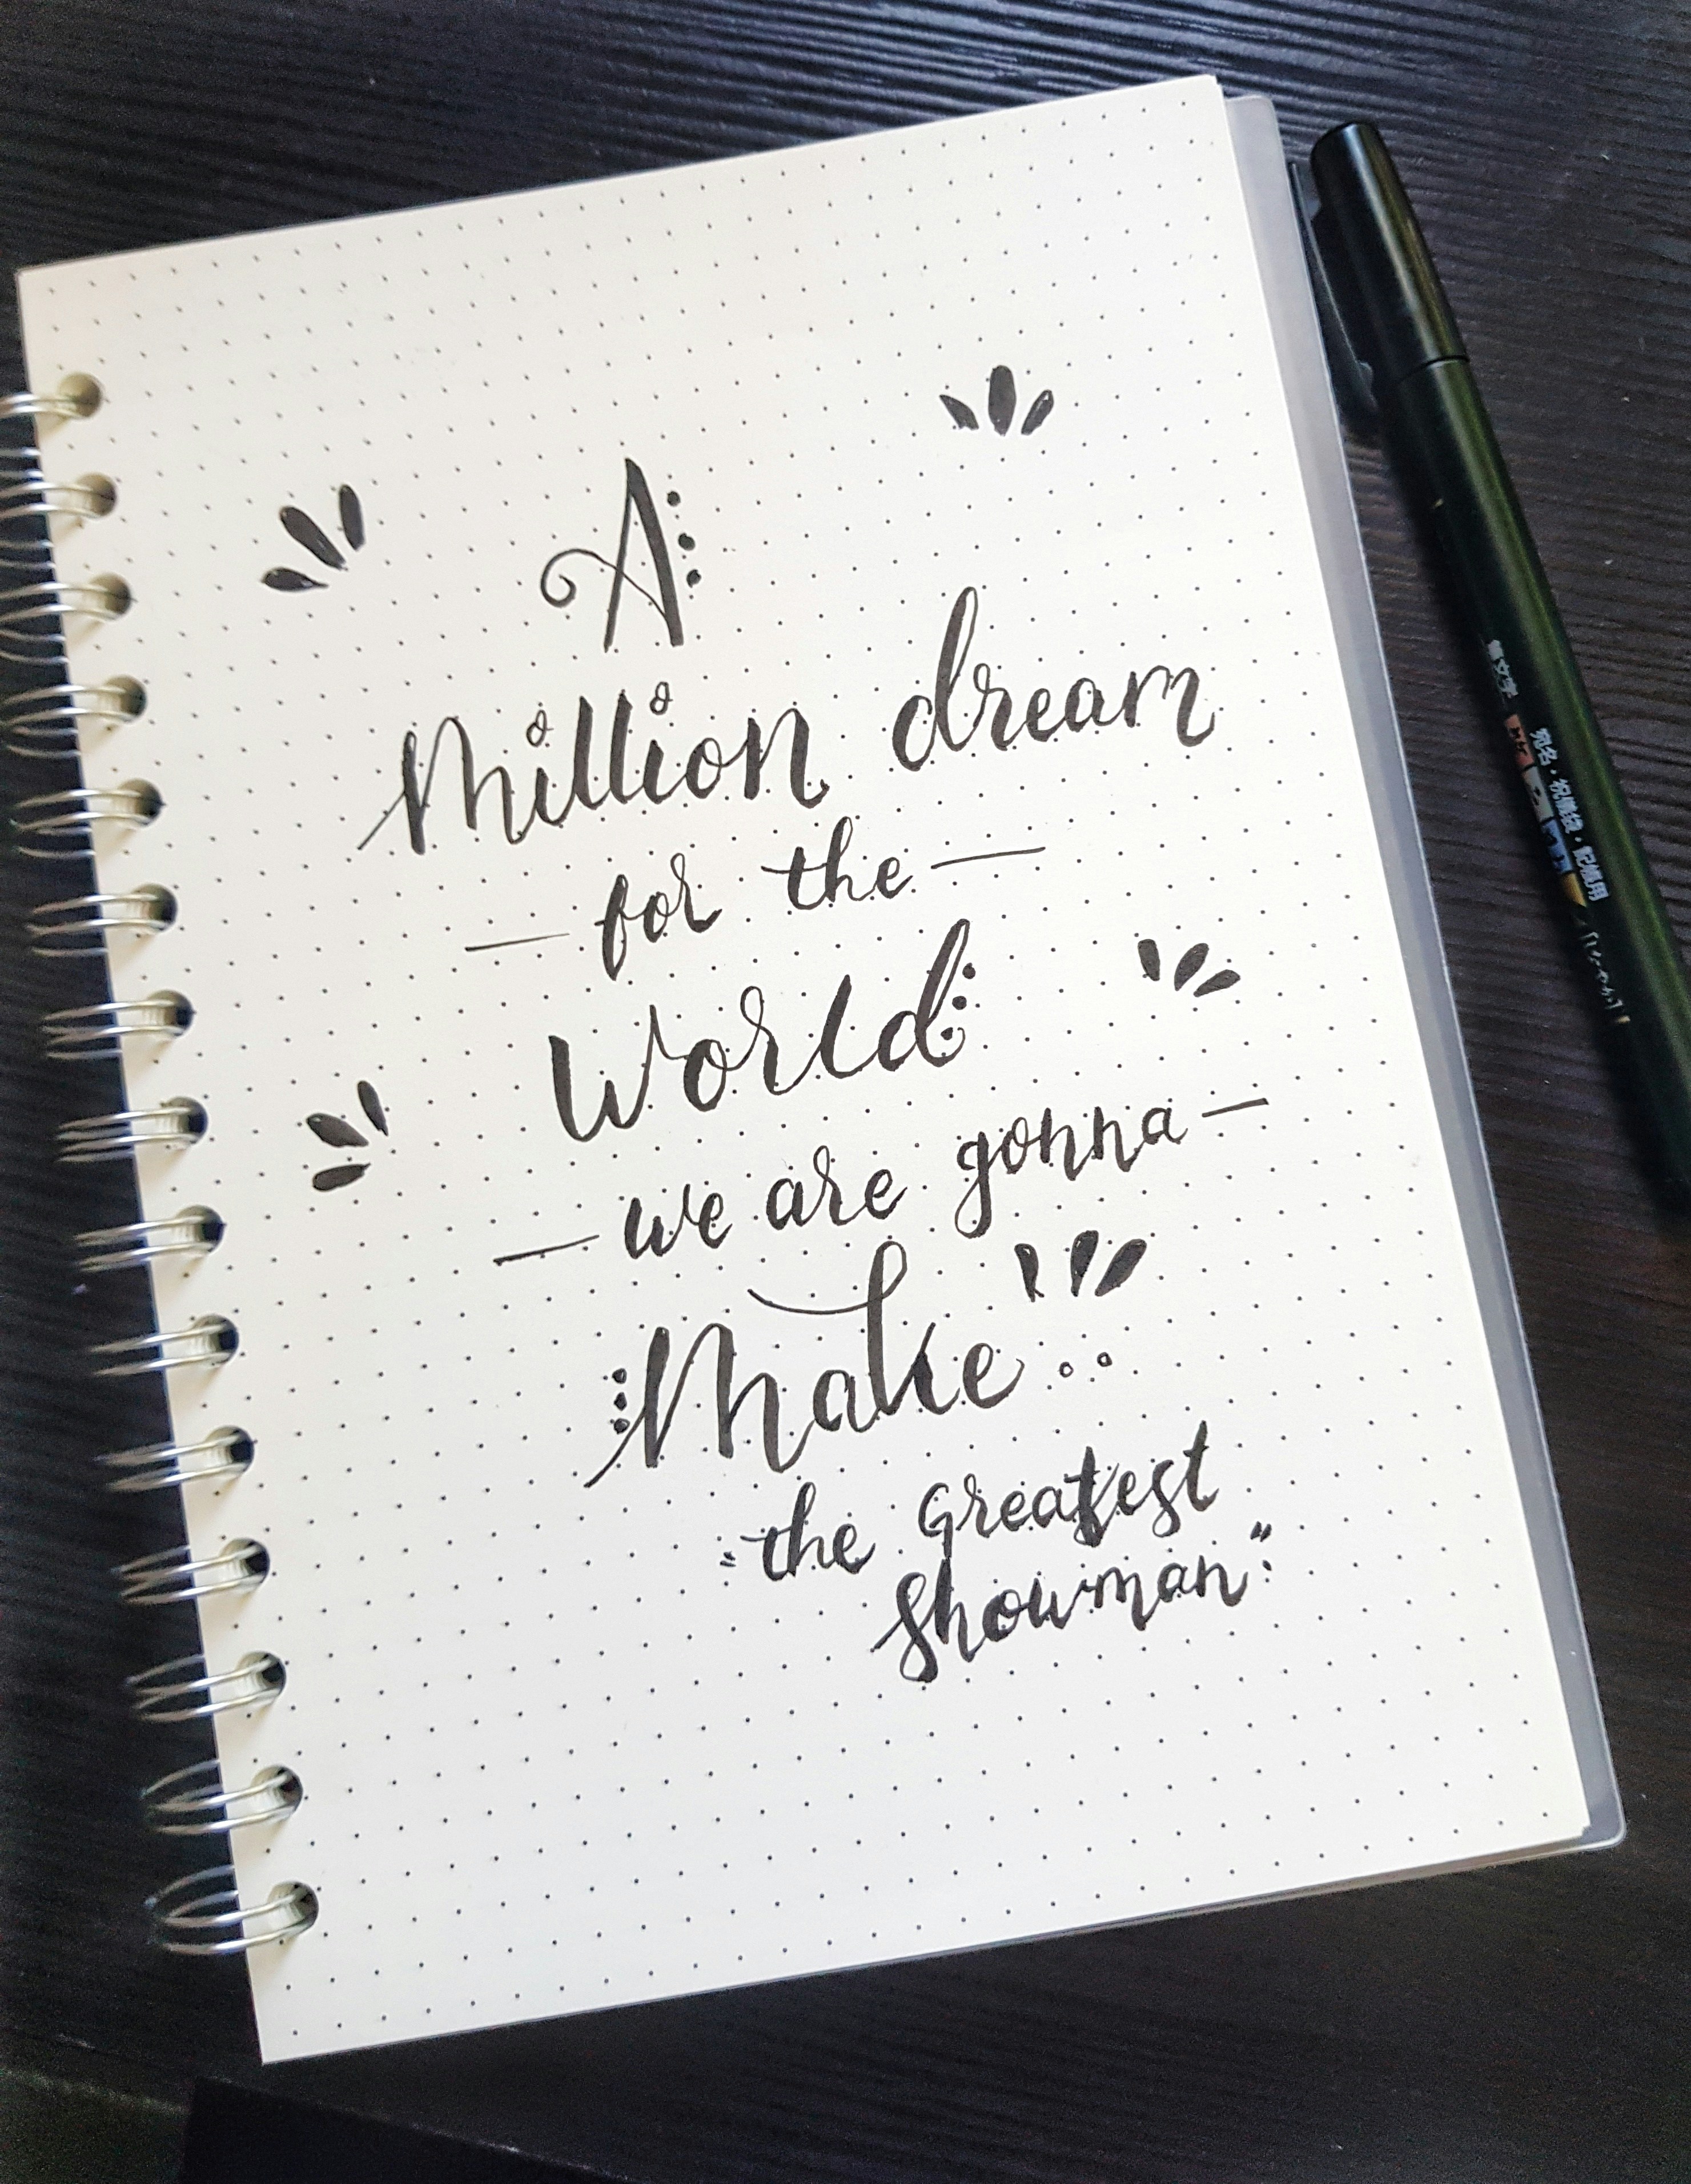 A
Million dream
— for the —
World
— we are gonna —
Make..
"the Greatest
Showman"
筆文字
宛名・祝儀袋・記帳用